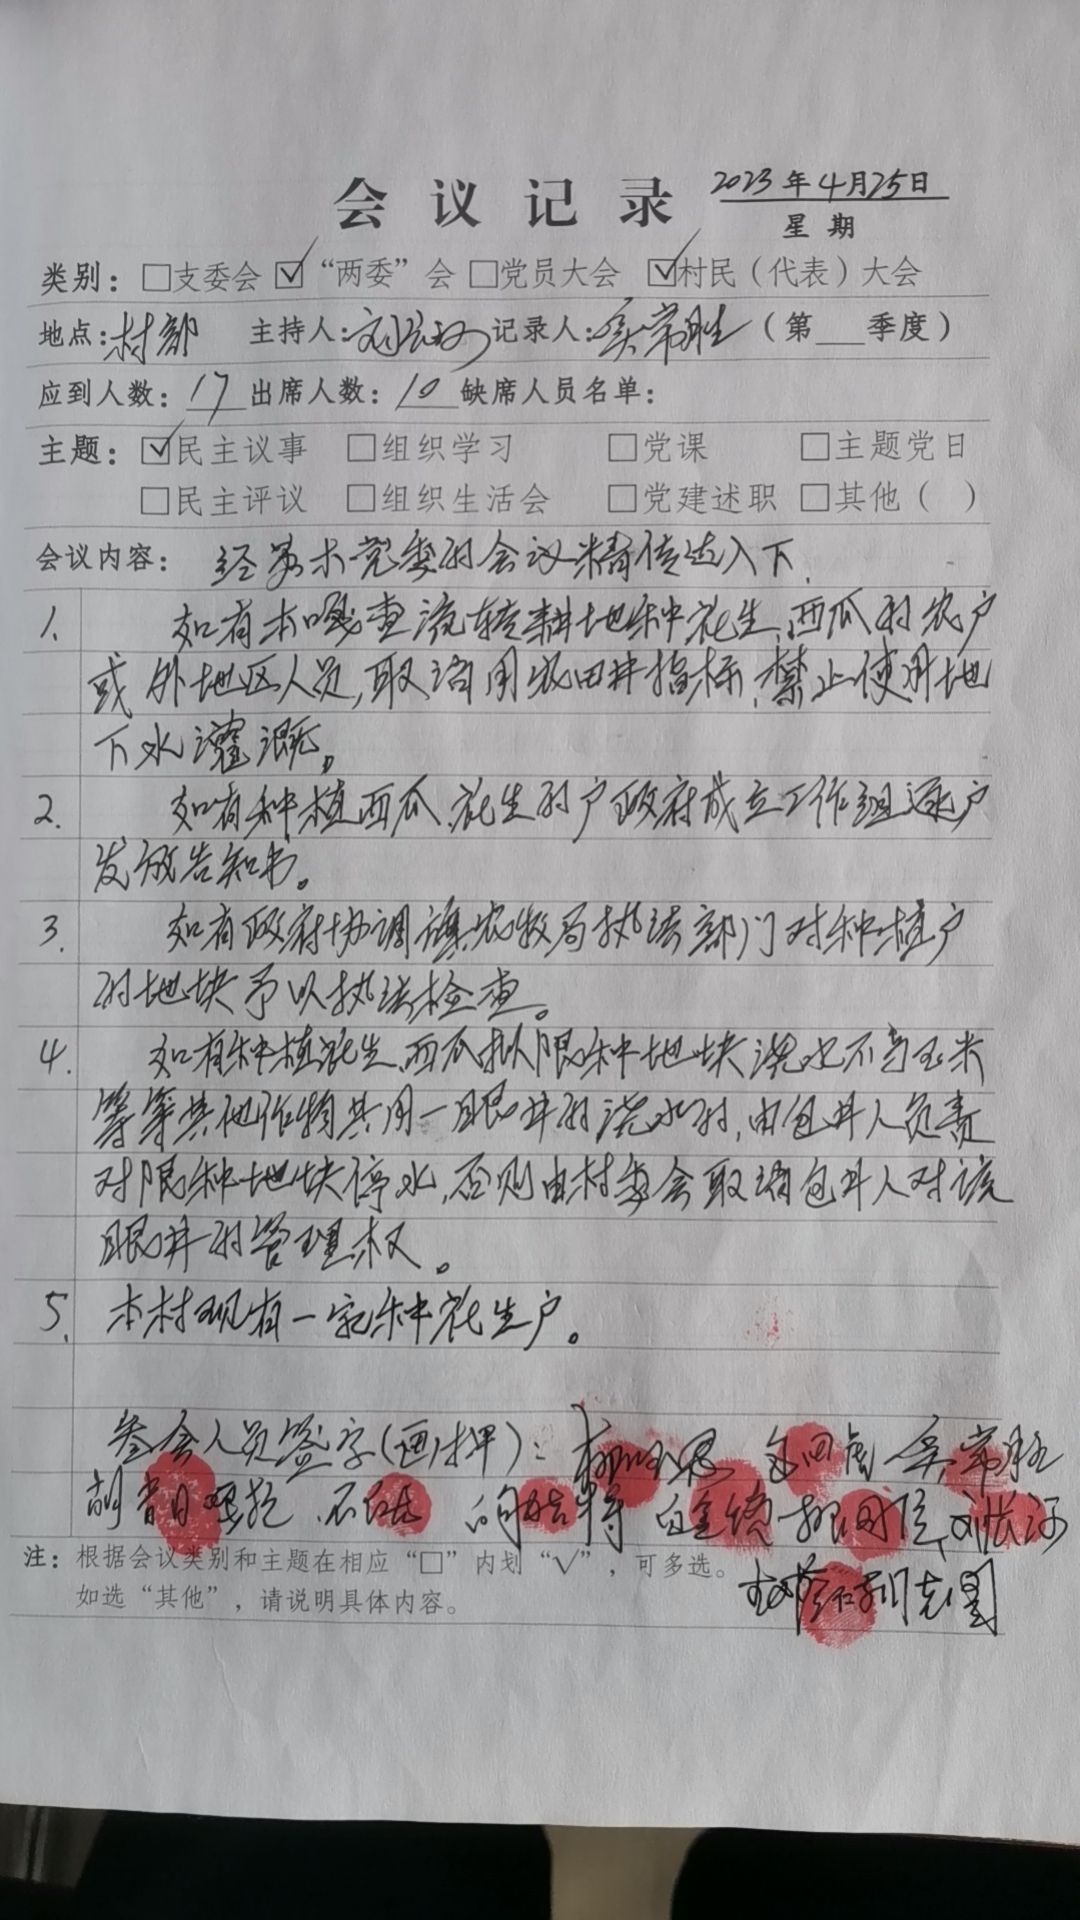 会议记录 2023年4月25日
星期
类别：□支委会 ☑“两委”会 □党员大会 ☑村民（代表）大会
地点：村部 主持人： 记录人：吴常胜（第___季度）
应到人数：17 出席人数：10 缺席人员名单：
主题：☑民主议事 □组织学习 □党课 □主题党日
□民主评议 □组织生活会 □党建述职 □其他（ ）
会议内容： 经苏木党委的会议精传达入下.
1. 如有本嘎查流转耕地种花生、西瓜的农户
或外地区人员,取消用农田井指标,禁止使用地
下水灌溉。
2. 如有种植西瓜、花生的户政府成立工作组逐户
发放告知书。
3. 如有政府协调旗农牧局执法部门对种植户
的地块予以执法检查。
4. 如有种植花生、西瓜拟限种地块浇水不与玉米
等等其他作物共用一眼井的浇水时,由包井人员责
对限种地块停水,否则由村委会取消包井人对该
眼井的管理权。
5. 本村现有一家种花生户。
参会人员签字(画押)： 吴常胜
胡
注：根据会议类别和主题在相应“□”内划“√”，可多选。
如选“其他”，请说明具体内容。